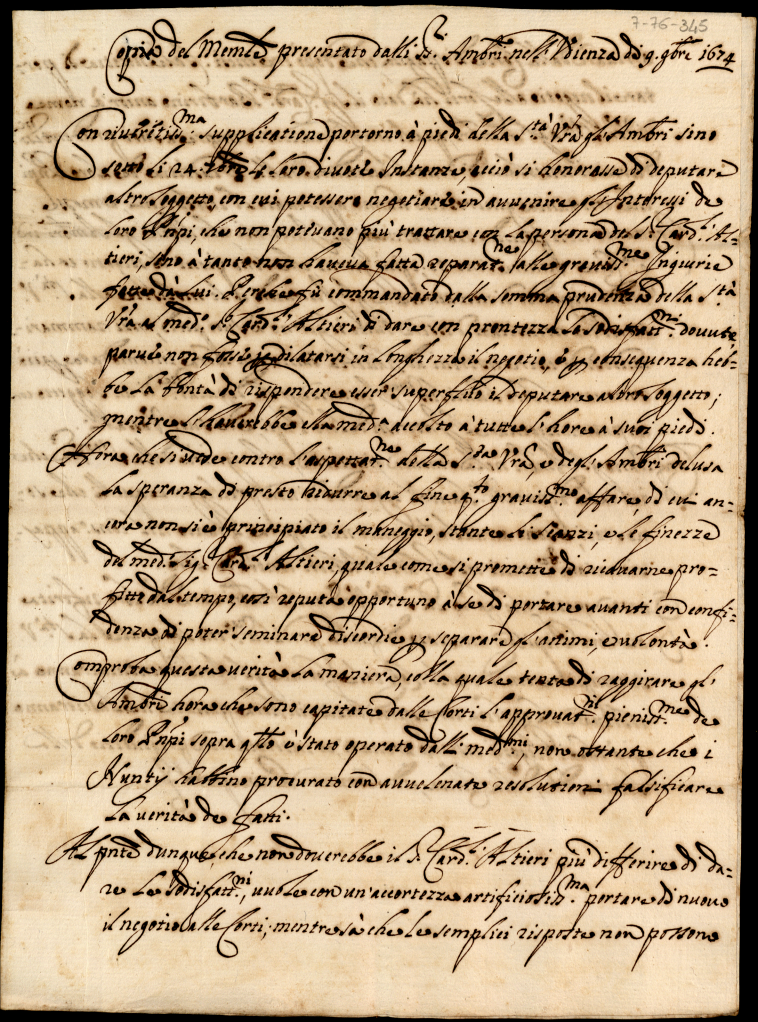 7-76-345
Copia del Memle presentato dalli SS.ri Ambri nell'Udienza di 9. 9bre 1674
Con riveritiss.ma supplicatione portorno à piedi della S.tà Vra gl'Ambri sino
sotto li 24. le loro divote Instanze acciò si honorasse di deputare
altro soggetto, con cui potessero negotiare in avvenire gl'Interessi de
loro Pnpi, che non potevano più trattare con la persona del S.r Card.l Al-
tieri, sino à tanto non haveva fatta reparat.ne alle graviss.me Ingiurie
fatte dà Lui. Perche fù commandato dalla somma prudenza della S.tà
Vra al med.o S.r Card.l Altieri di dare con prontezza le sodisfatt.ni dovute
parve non fosse p dilatarsi in longhezza il negotio, e p consequenza heb-
be la bontà di rispondere esser superfluo il deputare altro soggetto;
mentre l'haverebbe ella med.a accolto à tutte l'hore à suoi piedi.
Hora che si vede contro l'aspettat.ne della S.tà Vra, e degl'Ambri delusa
la speranza di presto ridurre al fine q.to graviss.mo affare, di cui an-
cora non si è principiato il maneggio, stante li scanzi, e le finezze
del med. Sig.r Card.l Altieri, quale come si promette di ricavarne pro-
fitto dal tempo, così reputa opportuno à se di portare avanti con confi-
denza di poter seminare discordie p separare gl'animi, e volontà.
Comproba questa verità la maniera, colla quale tenta di raggirare gl'
Ambri hora che sono capitate dalle Corti l'approvat.ni pieniss.me de
loro Pnpi sopra q.to è stato operato dalli med.mi, non ostante che i
Nuntij habbino procurato con avvelenate resolutioni falsificare
la verità de fatti.
Al pnte dunque, che non doverebbe il S.r Card.l Altieri più differire di da-
re le sodisfatt.ni, vuole con un'accortezza artificiosiss.ma portare di nuovo
il negotio alle Corti; mentre sà che le semplici risposte non possono